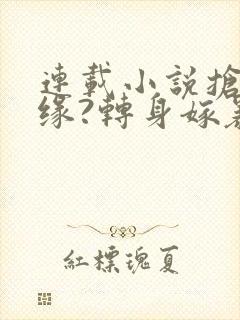 連載小說搶
緣?轉身嫁
紅標瑰夏